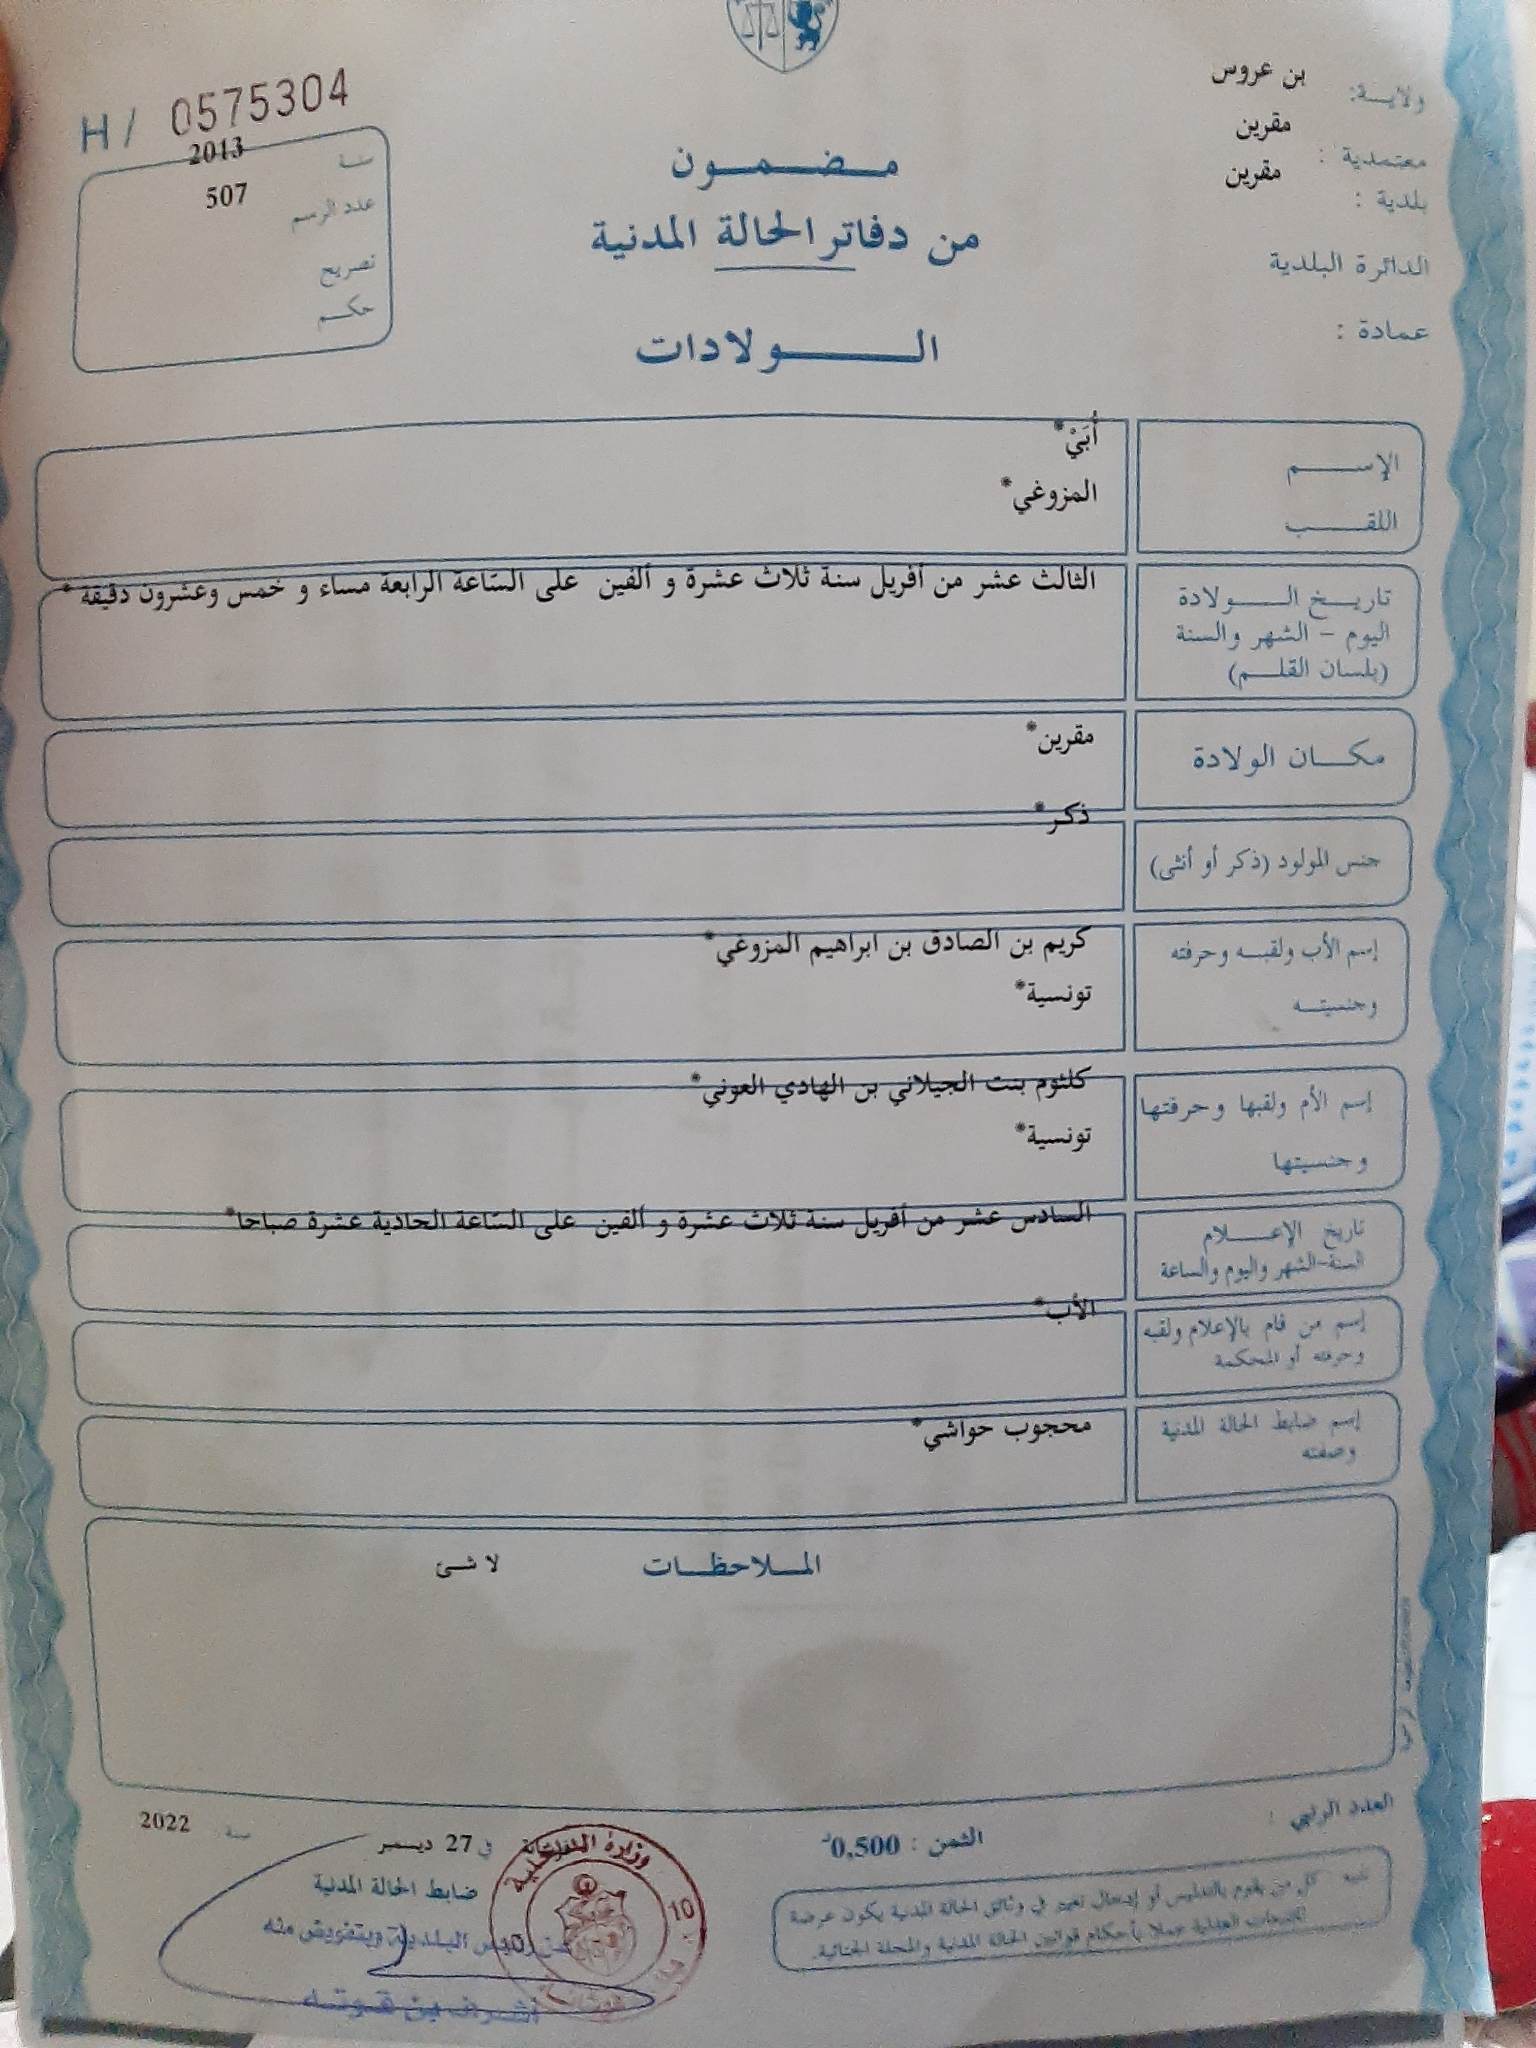 H / 0575304
ولايـــة: بن عروس
معتمدية : مقرين
بلدية : مقرين
الدائرة البلدية
عمادة :
سنـــة 2013
عدد الرسم 507
تصريح
حكـــم
مـــضـــمـــون
من دفاتر الحالة المدنية
الـــــولادات
الإســـــم أُبَيْ*
اللقـــب المزوغي*
تاريـــخ الـــــولادة
اليوم – الشهر والسنة
(بلسان القلـــم)
الثالث عشر من أفريل سنة ثلاث عشرة و ألفين على السّاعة الرابعة مساء و خمس وعشرون دقيقة *
مكـــان الولادة مقرين*
جنس المولود (ذكر أو أنثى) ذكر*
إسم الأب ولقبـــه وحرفته كريم بن الصادق بن ابراهيم المزوغي*
وجنسيتـــه تونسية*
إسم الأم ولقبها وحرفتها كلثوم بنت الجيلاني بن الهادي العوني*
وجنسيتها تونسية*
تاريخ الإعـــلام
السنة-الشهر واليوم والساعة
السادس عشر من أفريل سنة ثلاث عشرة و ألفين على السّاعة الحادية عشرة صباحا*
إسم من قام بالإعلام ولقبه
وحرفته أو المحكمة
الأب*
إسم ضابط الحالة المدنية
وصفته
محجوب حواشي*
الملاحظـــات لا شئ
العدد الرتبي :
الثمن : 0,500د
في 27 ديسمبر سنة 2022
ضابط الحالة المدنية
عن رئيس البلدية وبتفويض منه
أشرف بن قوتـه
وزارة الداخلية
10
تنبيه كل من يقوم بالتدليس أو إدخال تغيير في وثائق الحالة المدنية يكون عرضة
للتتبعات العدلية عملا بأحكام قوانين الحالة المدنية والمجلة الجنائية.